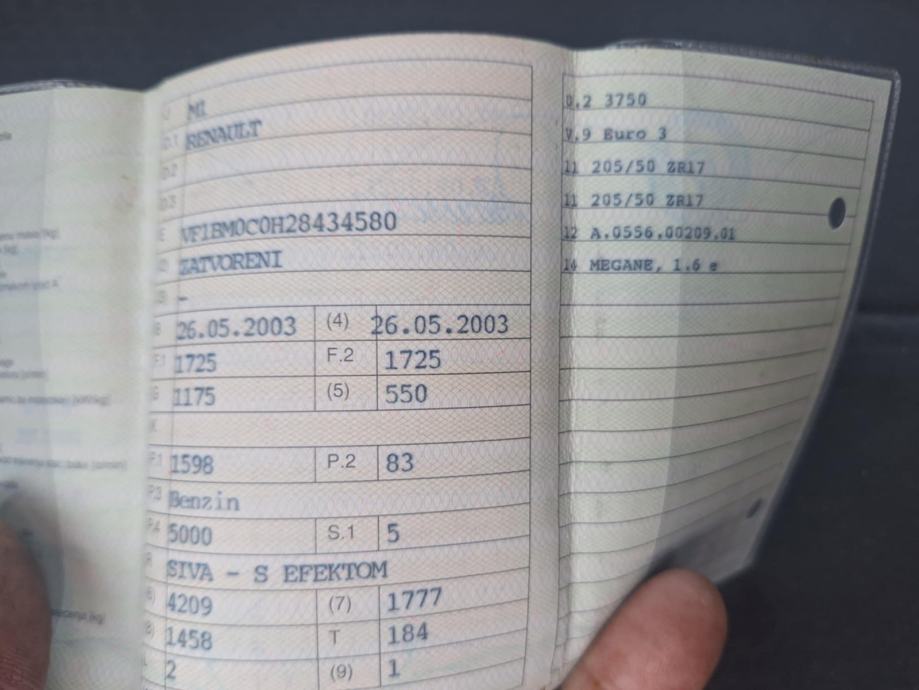 J M1
D.1 RENAULT
D.2
D.3
E VF1BM0C0H28434580
ZATVORENI
-
B 26.05.2003 (4) 26.05.2003
F.1 1725 F.2 1725
G 1175 (5) 550
K
P.1 1598 P.2 83
P.3 Benzin
P.4 5000 S.1 5
R SIVA - S EFEKTOM
(6) 4209 (7) 1777
(8) 1458 T 184
L 2 (9) 1
0.2 3750
V.9 Euro 3
11 205/50 ZR17
11 205/50 ZR17
12 A.0556.00209.01
14 MEGANE, 1.6 e